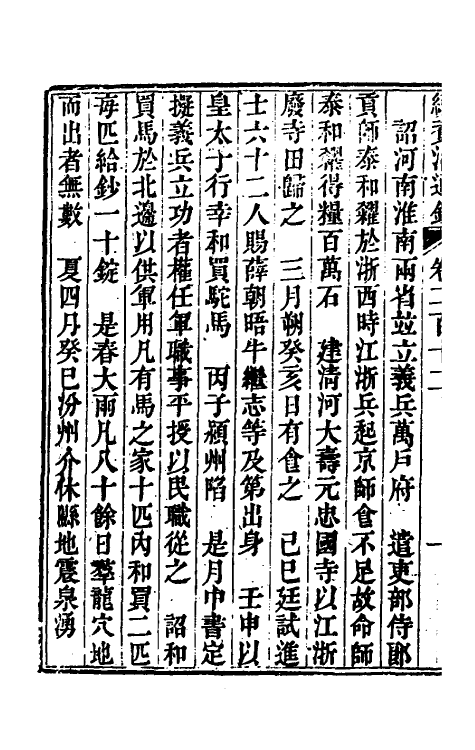 續資治通鑑 卷二百十二 一
詔河南淮南兩省竝立義兵萬戶府 遣吏部侍郎
貢師泰和糴於浙西時江浙兵起京師食不足故命師
泰和糴得糧百萬石 建淸河大壽元忠國寺以江浙
廢寺田歸之 三月朔癸亥日有食之 己巳廷試進
士六十二人賜薛朝晤牛繼志等及第出身 壬申以
皇太子行幸和買駝馬 丙子潁州陷 是月中書定
擬義兵立功者權任軍職事平授以民職從之 詔和
買馬於北邊以供軍用凡有馬之家十匹內和買二匹
每匹給鈔一十錠 是春大雨凡八十餘日羣龍穴地
而出者無數 夏四月癸巳汾州介休縣地震泉湧